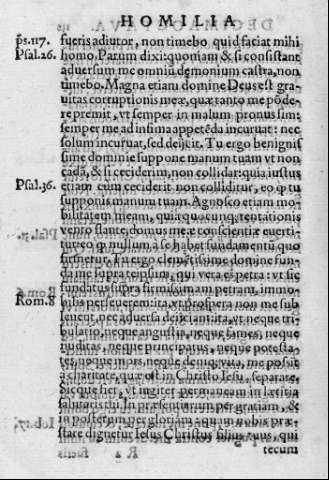 HOMILIA
ps.117. fueris adiutor, non timebo quid faciat mihi
Psal.26. homo. Parum dixi: quoniam & si consistant
aduersum me omniũ demonium castra, non
timebo. Magna etiam domine Deus est gra
uitas corruptionis meæ, quæ tanto me põde-
re premit, vt semper in malum pronus sim:
semper me ad infima appetẽda incuruat: nec
solum incuruat, sed deijcit. Tu ergo benignis
sime domine suppone manum tuam vt non
cadã, & si ceciderim, non collidar: quia iustus
Psal.36. etiam cum ceciderit non colliditur, eo ꝙ tu
supponis manum tuam. Agnosco etiam mo
bilitatem meam, quia quocunq; tentationis
vento flante, domus meæ conscientiæ euerti-
tur: eo ꝙ nullum à se habet fundamentũ quo
firmetur. Tu ergo clemẽtissime domine fun-
da me supra teipsum, qui vera es petra: vt sic
fundatus supra firmissimam petram, immo-
Rom.8 bilis perseuerem: ita vt prospera non me sub
leuent, nec aduersa deijciant: ita vt neque tri-
bulatio, neque angustia, neque fames, neque
nuditas, neque principatus, neque potesta-
tes, neque mors, neque denique vita, me possit
à charitate, quæ est in Christo Iesu, separare,
sicque her, vt iugiter permaneam in lætitia
salutaris tui. In præsenti per gratiam, &
in posterum per gloriam, quam nobis præ-
stare dignetur Iesus Christus filius tuus, qui
tecum